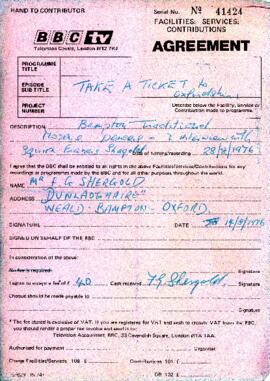 HAND TO CONTRIBUTOR
Serial No. Nº 41424
BBC tv
Television Centre, London W12 7RJ
FACILITIES: SERVICES:
CONTRIBUTIONS
AGREEMENT
PROGRAMME
TITLE
EPISODE
SUB TITLE
TAKE A TICKET to
PROJECT
NUMBER
Describe below the Facility, Service or
Contribution made to programme.
DESCRIPTION Bampton Traditional
Morris Dancers - & Interview with
Squire Francis Shergold of filming/recording 28/8/1976
I agree that the BBC shall be entitled to all rights in the above Facilities/Services/Contributions for any
recordings or programmes made by the BBC and for all other purposes throughout the world.
NAME Mr F. G SHERGOLD
ADDRESS "DUNLAOGHAIRE"
WEALD - BAMPTON - OXFORD.
SIGNATURE DATE 18/8/1976
SIGNED ON BEHALF OF THE BBC
In consideration of the above:
No fee is required
I agree to accept a fee of £ 40 Cash received F G Shergold
Cheque should be made payable to
* The fee stated is exclusive of VAT. If you are registered for VAT and wish to recover VAT from the BBC,
you should render a proper tax invoice and send it to:
Television Accountant, BBC, 33 Cavendish Square, London W1A 1AA.
Authorised for payment Urgency
Charge Facilities/Services 108 £ Contributions 101 £